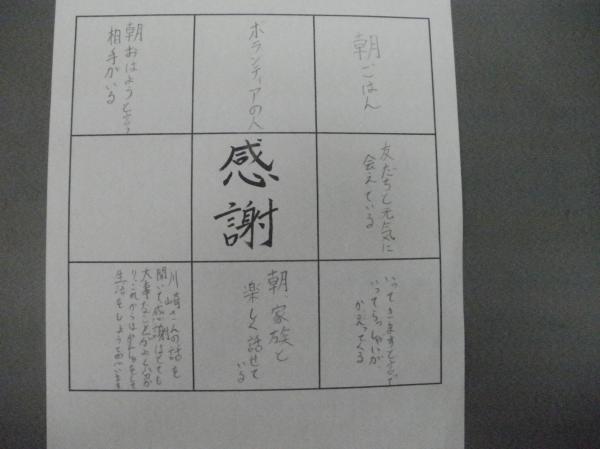 朝ごはん
ボランティアの人
朝おはようと言う
相手がいる
友だちと元気に
会えている
感
謝
いってきますと言って
いってらっしゃいが
かえってくる
朝、家族と
楽しく話せて
いる
川崎さんの話を
聞いて感謝はとても
大事なことがよく分か
り、これからは
生活をしようと思います